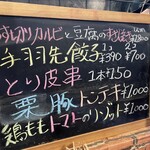 カルビと豆腐のすき
手羽先餃子 1コ ¥390 2コ ¥700
とり皮串 1本 ¥150
栗豚トンテキ ¥1,000
鶏ももトマトのリゾット ¥1,000